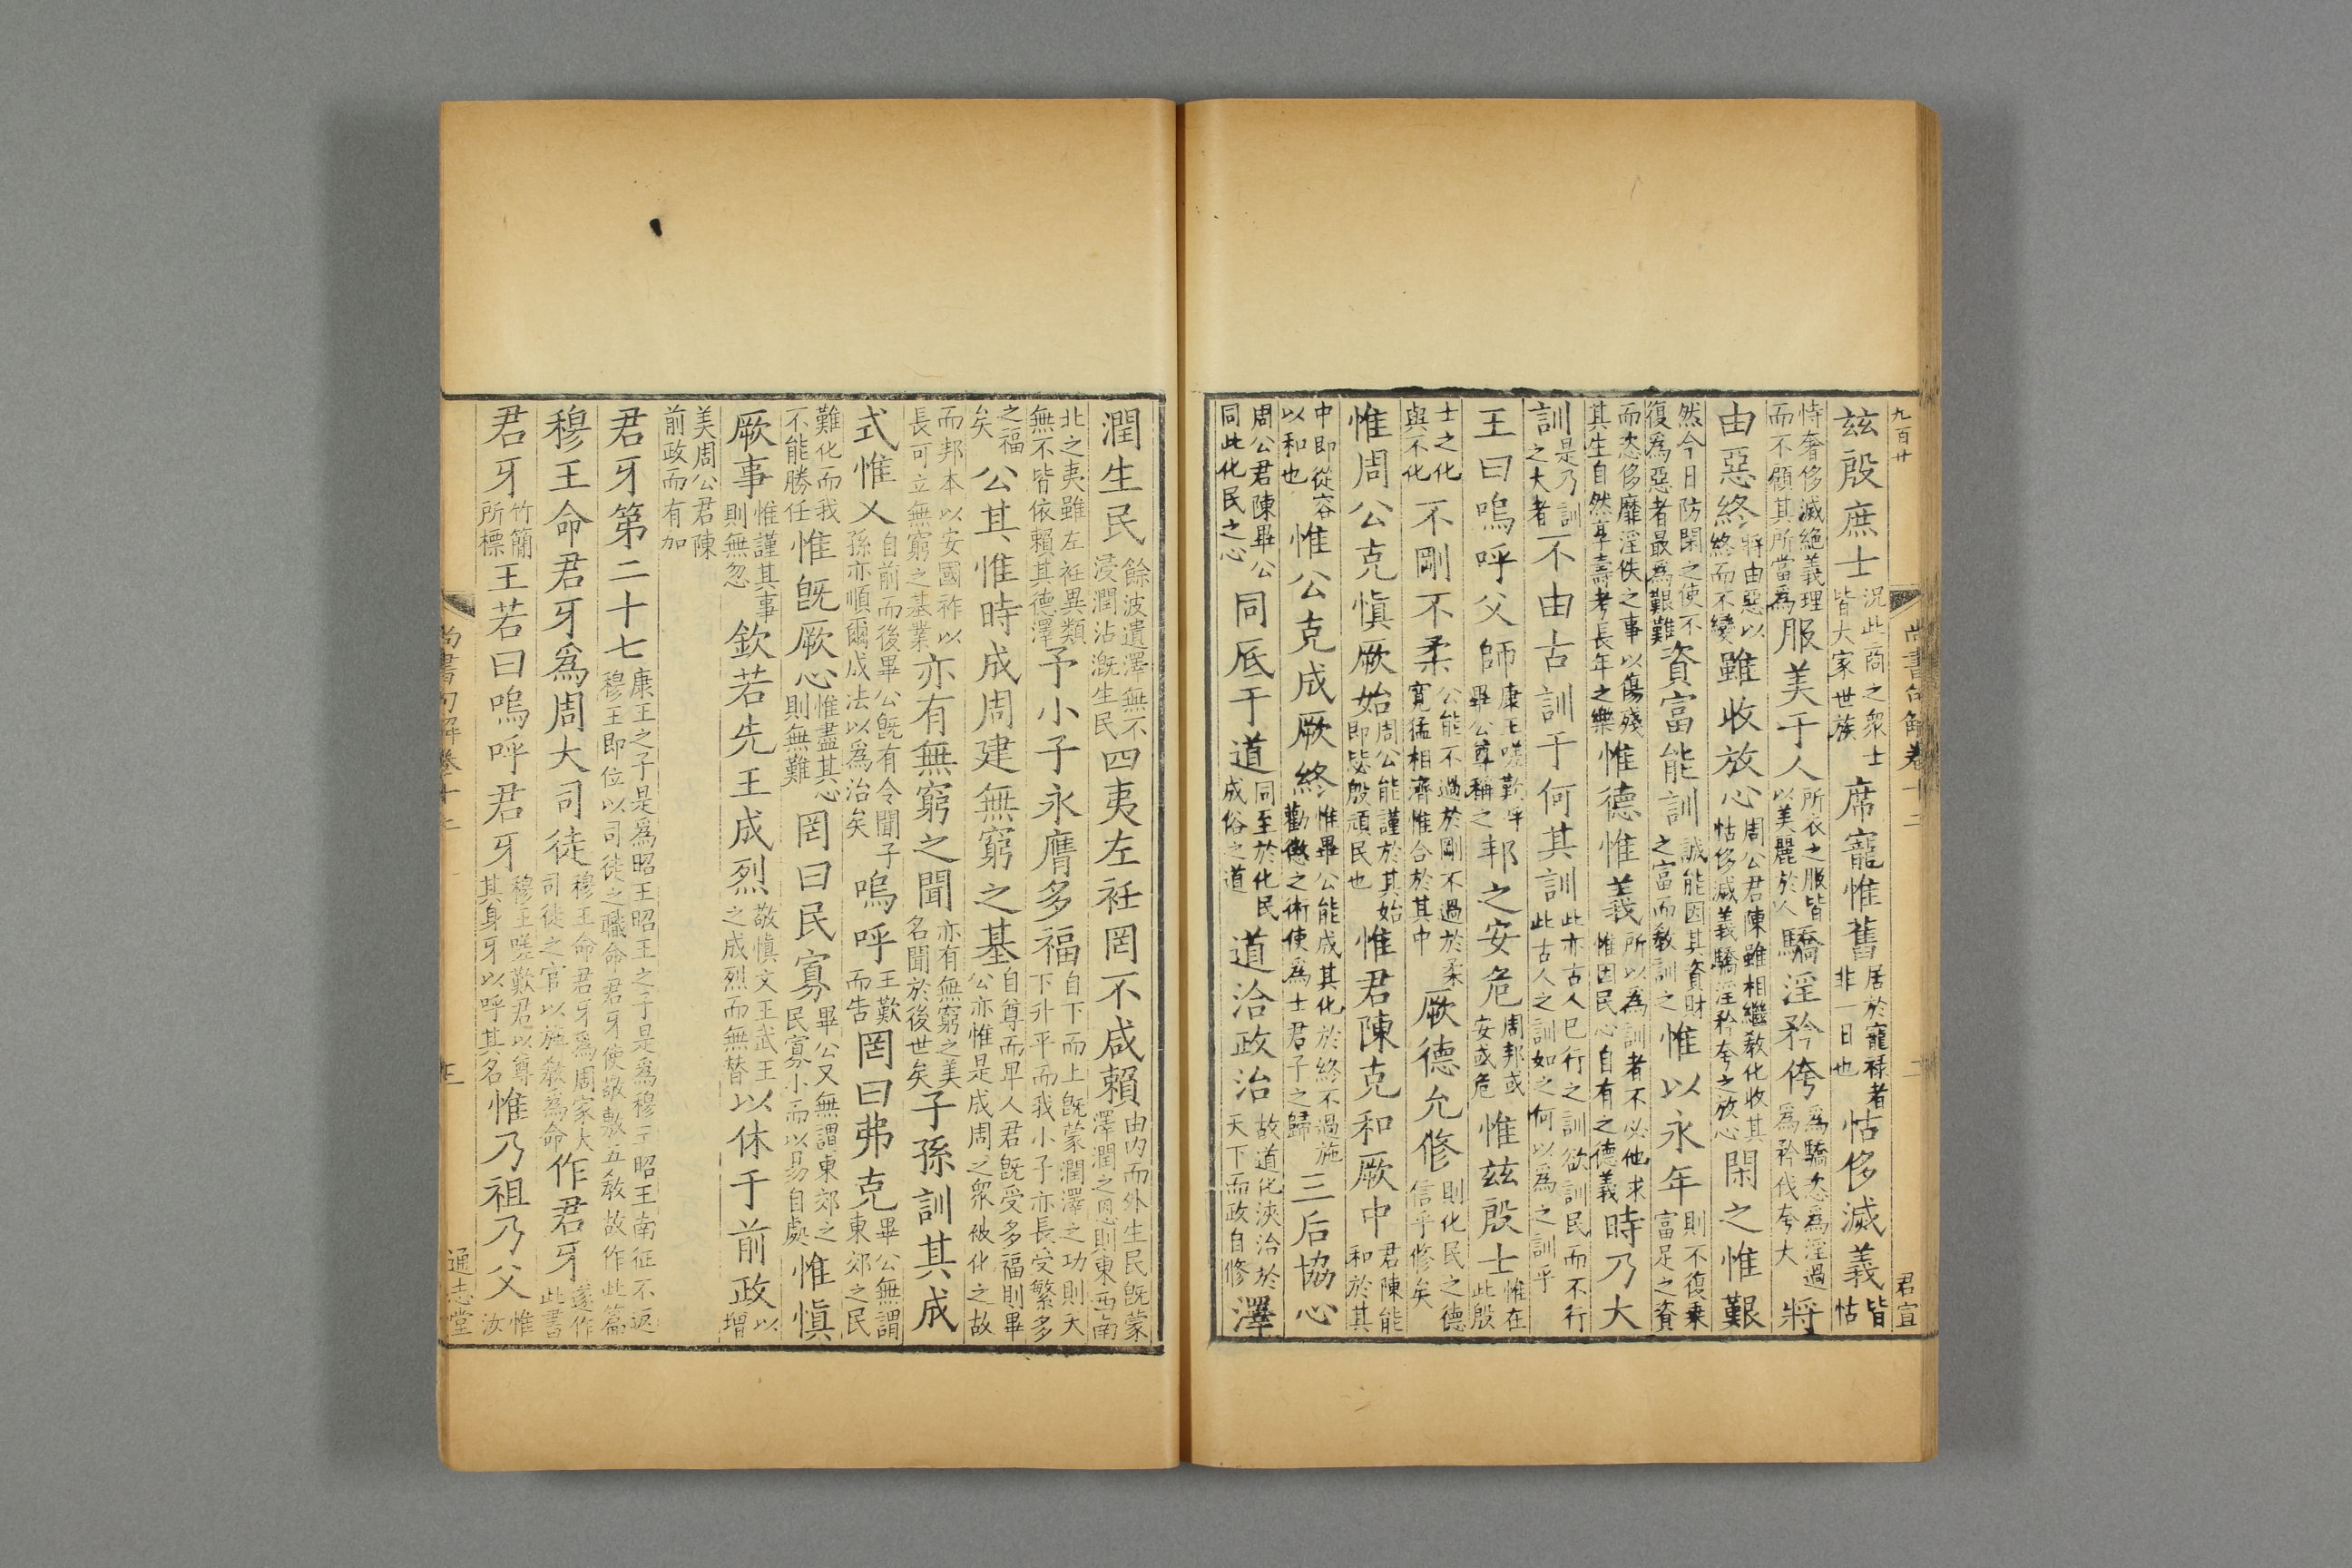 九百廿 尚書句解卷十二 二 君宣
兹殷庶士況此商之衆士皆大家世族席寵惟舊居於寵祿者非一日也怙侈滅義皆怙
恃奢侈滅絶義理而不顧其所當爲服美于人所衣之服皆以美麗於人驕淫矜侉爲驕恣爲淫過爲矜伐夸大將
由惡終將由惡以終而不變雖收放心周公君陳雖相繼敎化收其怙侈滅義驕淫矜夸之放心閑之惟艱
然今日防閑之使不復爲惡者最爲艱難資富能訓誠能因其資財之富而敎訓之惟以永年則不復乗富足之資
而恣侈靡淫佚之事以傷殘其生自然享壽考長年之樂惟德惟義所以爲訓者不必他求惟因民心自有之德義時乃大
訓是乃訓之大者不由古訓于何其訓此亦古人已行之訓欲訓民而不行此古人之訓如之何以爲之訓乎
王曰嗚呼父師康王嗟歎呼畢公尊稱之邦之安危周邦或安或危惟兹殷士惟在此殷
士之化與不化不剛不柔公能不過於剛不過於柔寬猛相濟惟合於其中厥德允修則化民之德信乎修矣
惟周公克愼厥始周公能謹於其始即毖殷頑民也惟君陳克和厥中君陳能和於其
中即從容以和也惟公克成厥終惟畢公能成其化於終不過施勸懲之術使爲士君子之歸三后協心
周公君陳畢公同此化民之心同厎于道同至於化民成俗之道道洽政治故道化浹洽於天下而政自修澤
潤生民餘波遺澤無不浸潤沾漑生民四夷左衽罔不咸賴由内而外生民旣蒙澤潤之恩則東西南
北之夷雖左衽異類無不皆依賴其德澤予小子永膺多福自下而上旣蒙潤澤之功則天下升平而我小子亦長受繁多
之福矣公其惟時成周建無窮之基自尊而卑人君旣受多福則畢公亦惟是成周之衆被化之故
而邦本以安國祚以長可立無窮之基業亦有無窮之聞亦有無窮之美名聞於後世矣子孫訓其成
式惟乂自前而後畢公旣有令聞子孫亦順爾成法以爲治矣嗚呼王歎而告罔曰弗克畢公無謂東郊之民
難化而我不能勝任惟旣厥心惟盡其心則無難罔曰民寡畢公又無謂東郊之民寡小而以易自處惟愼
厥事惟謹其事則無忽欽若先王成烈敬愼文王武王之成烈而無替以休于前政以增
美周公君陳前政而有加
君牙第二十七康王之子是爲昭王昭王之子是爲穆王昭王南征不返穆王即位以司徒之職命君牙使敬敷五敎故作此篇
穆王命君牙爲周大司徒穆王命君牙爲周家大司徒之官以施敎爲命作君牙遂作此書
君牙竹簡所標王若曰嗚呼君牙穆王嗟歎君以尊其身牙以呼其名惟乃祖乃父惟汝
尚書句解卷十二 三 通志堂